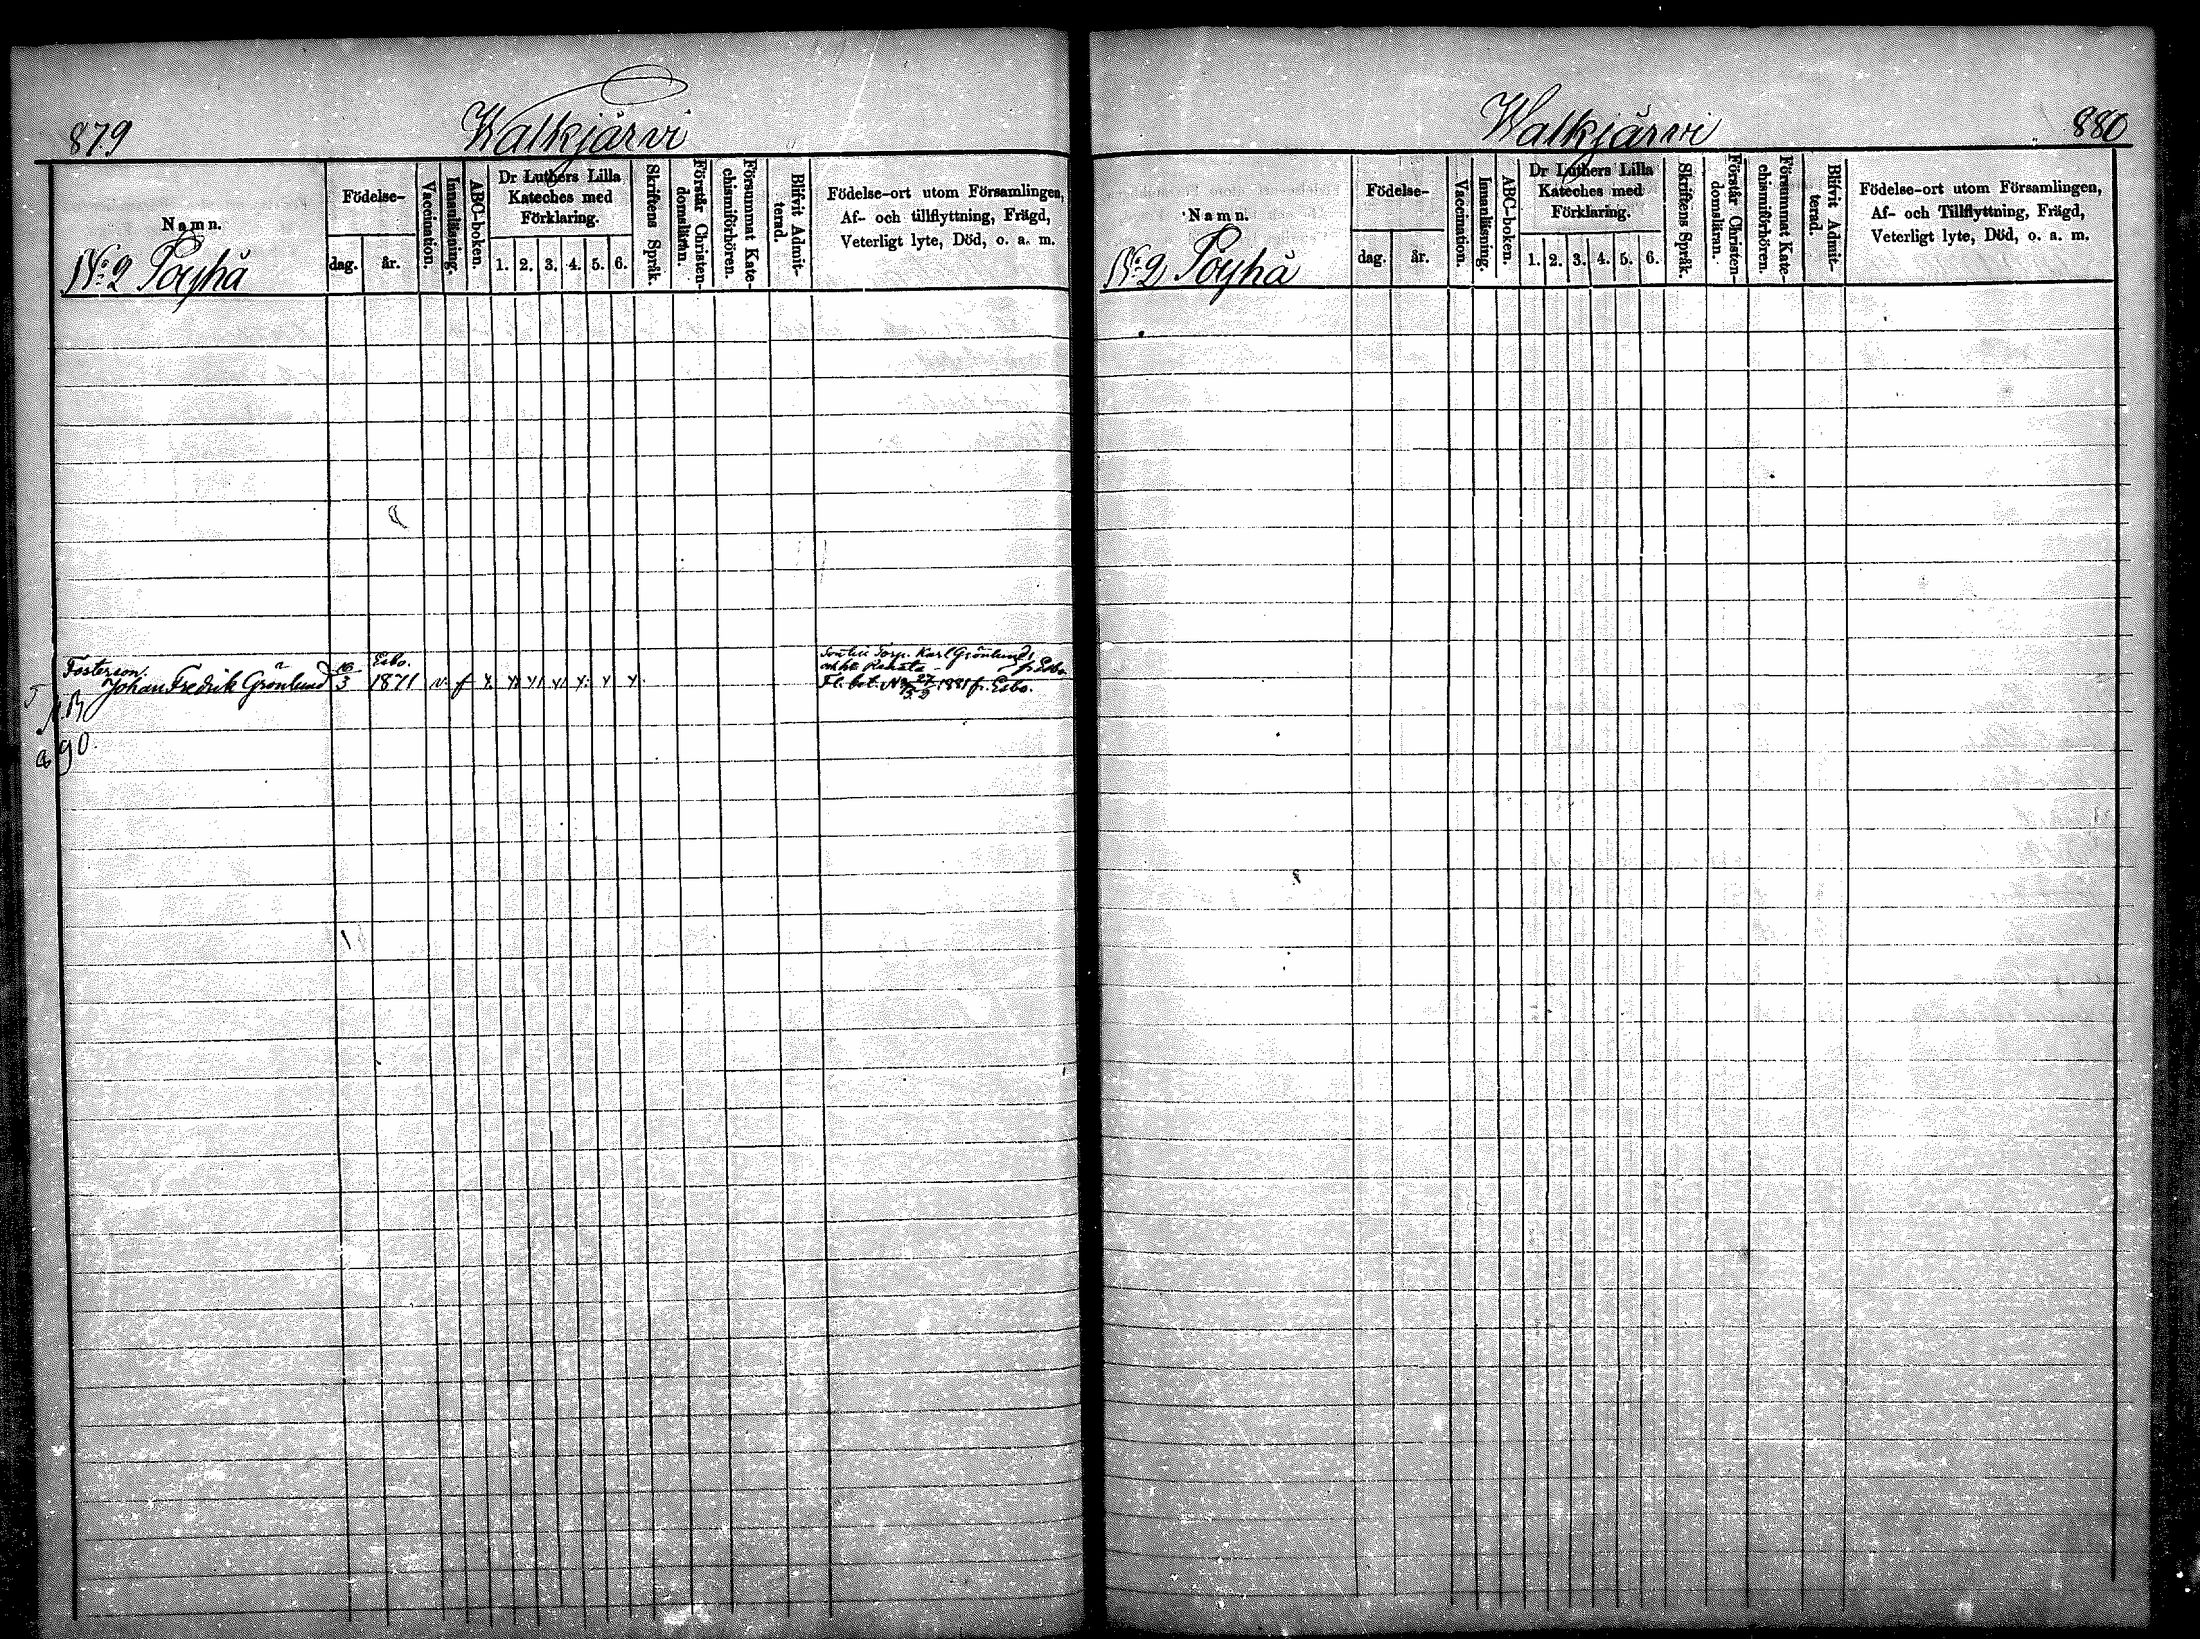 879
Walkjärvi
Namn.
Födelse-
dag.
år.
Vaccination.
Innanläsning.
ABC-boken.
Dr Luthers Lilla
Kateches med
Förklaring.
1. 2. 3. 4. 5. 6.
Skriftens Språk.
Förstår Christen-
domsläran.
Försummat Kate-
chismiförhören.
Blifvit Admit-
terad.
Födelse-ort utom Församlingen,
Af- och tillflyttning, Frägd,
Veterligt lyte, Död, o. a. m.
No 2 Poyhä
Fosterson.
Johan Fredrik Grönlund
16/3
Esbo.
1871
Torp. Karl Grönlunds
Renata fr. Esbo
1881 fr. Esbo.
90
Walkjärvi
880
Namn.
Födelse-
dag.
år.
Vaccination.
Innanläsning.
ABC-boken.
Dr Luthers Lilla
Kateches med
Förklaring.
1. 2. 3. 4. 5. 6.
Skriftens Språk.
Förstår Christen-
domsläran.
Försummat Kate-
chismiförhören.
Blifvit Admit-
terad.
Födelse-ort utom Församlingen,
Af- och Tillflyttning, Frägd,
Veterligt lyte, Död, o. a. m.
No 2 Poyhä